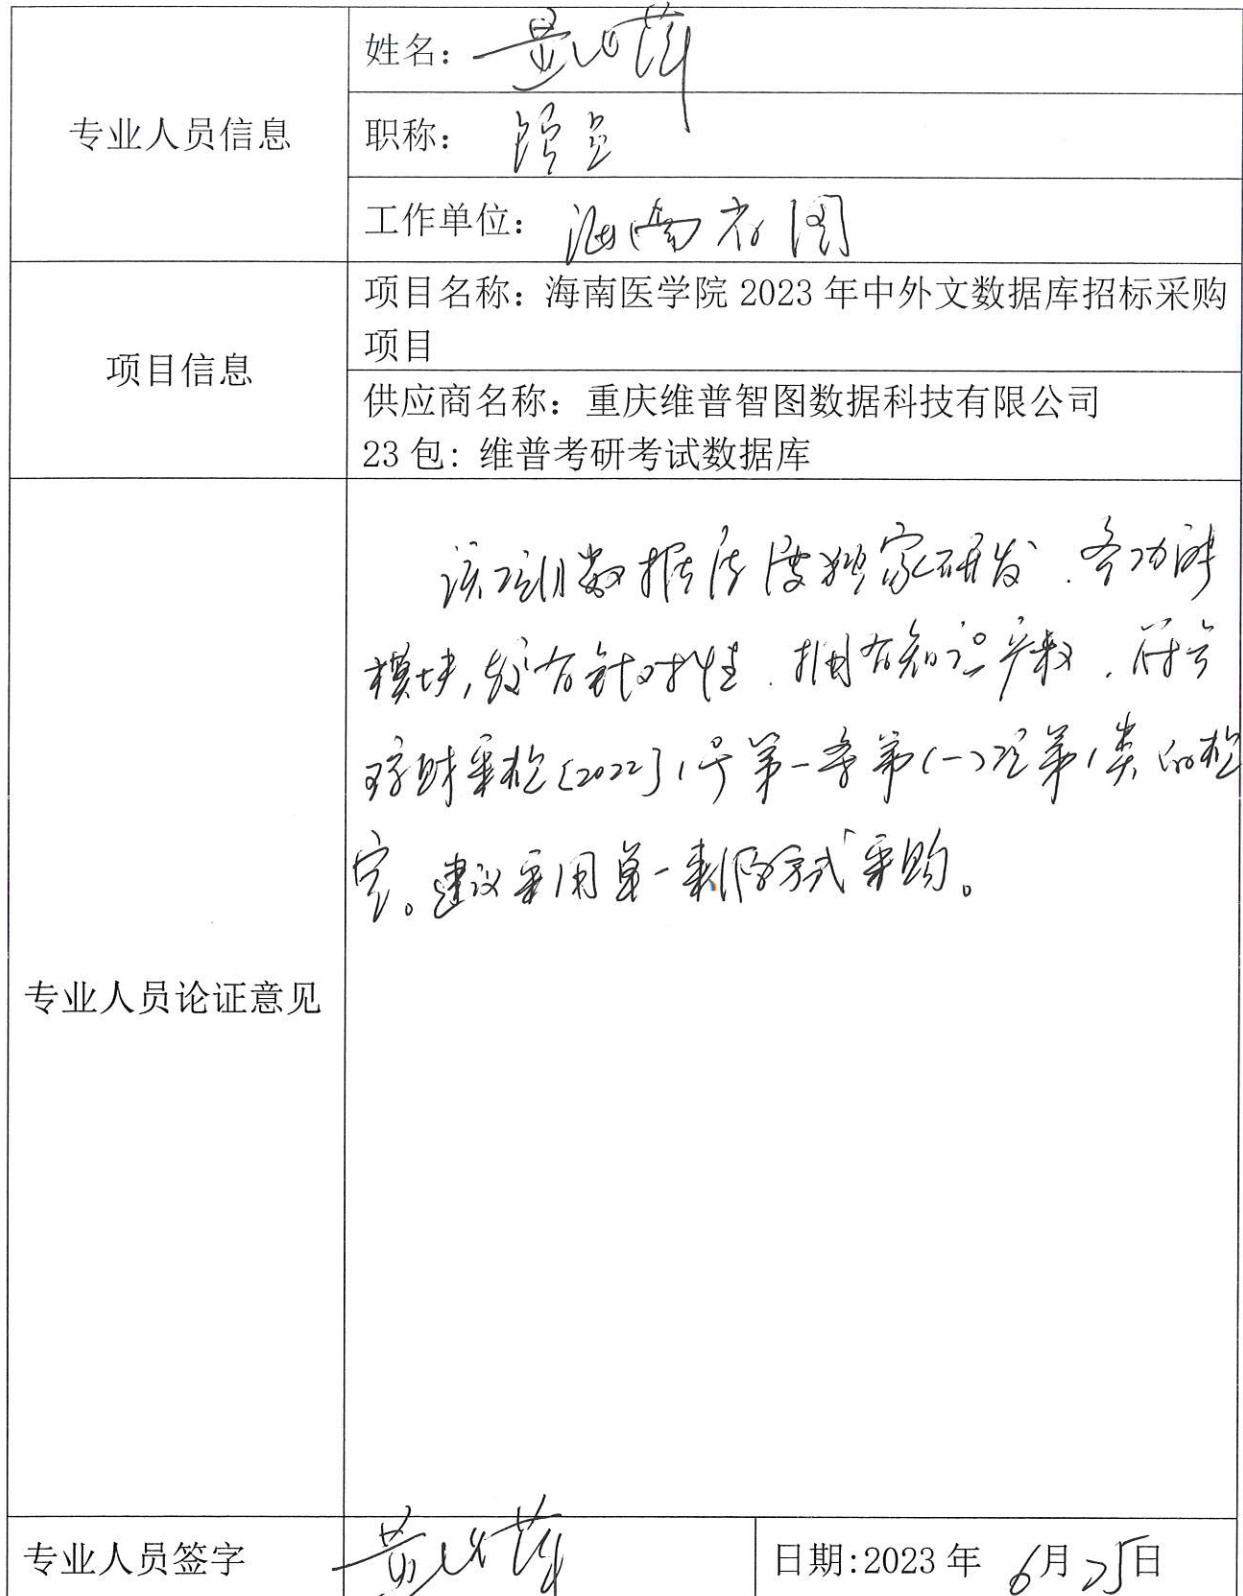 专业人员信息
姓名：
职称：
工作单位：海南省图
项目信息
项目名称：海南医学院 2023 年中外文数据库招标采购
项目
供应商名称：重庆维普智图数据科技有限公司
23 包：维普考研考试数据库
专业人员论证意见
该项目数据库独家研发．各功能
模块，较有针对性．拥有知识产权．符合
琼财采规〔2022〕1号第一条第(一)项第1类的规
定。建议采用单一来源方式采购。
专业人员签字
日期:2023 年 6月25日